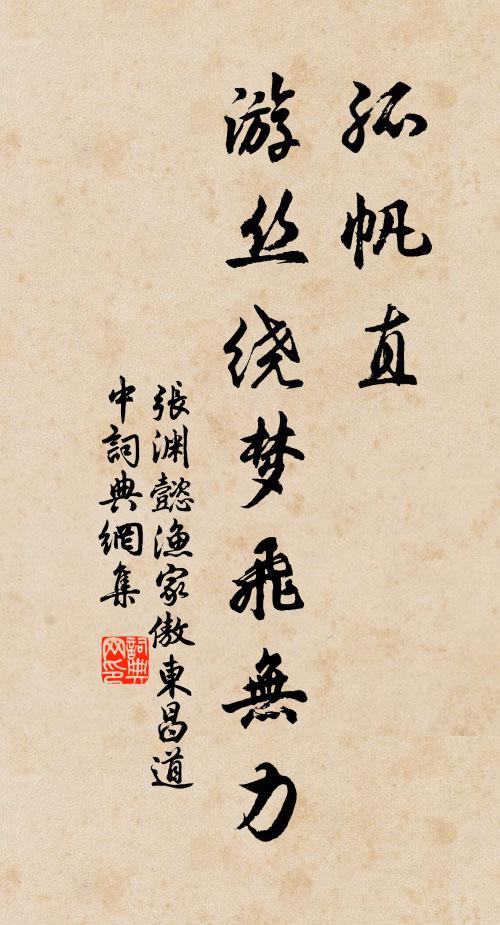 孤帆直
游丝绕梦飛無力
張渊懿漁家傲東昌道
中詞典網集
詞典
网印